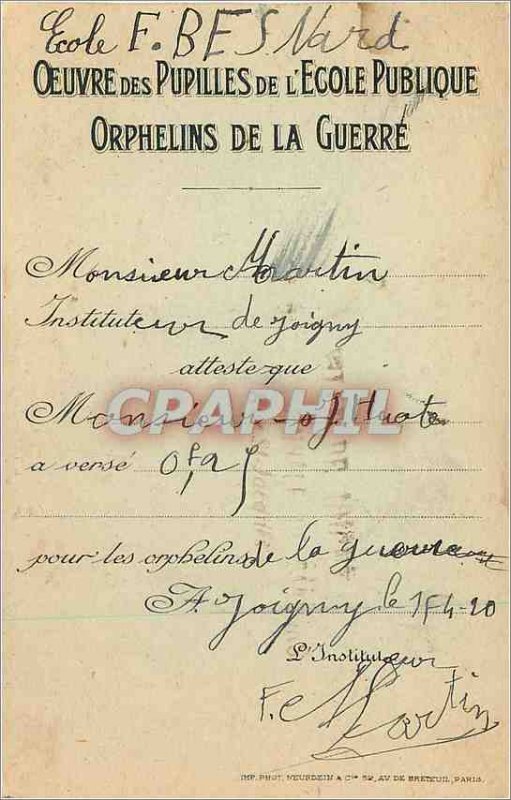 Ecole F. BESNard
ŒUVRE DES PUPILLES DE L'ECOLE PUBLIQUE
ORPHELINS DE LA GUERRE
Monsieur Martin
Instituteur de Joigny
atteste que
CPARHIL
Monsieur J Huot
a versé 0f,25
pour les orphelins de la guerre
A Joigny le 15-4-20
L'Instituteur
F. Martin
IMP. PHOT. NEURDEIN & Cie 52, AV. DE BRETEUIL, PARIS.